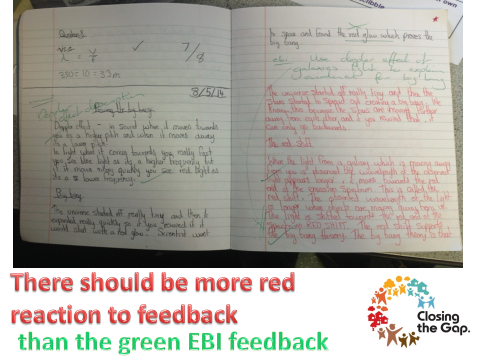 Question 2
λ = v/f
7/8
330 ÷ 10 = 33m
8/5/14
the big bang
Doppler effect - in sound when it moves towards
us its a higher pitch and when it moves away
its a lower pitch.
In light when it comes towards you really fast
you see blue light as its a higher frequency but
if it moves away quickly you see red light as
its a lower frequency.
Big bang
The universe started off really tiny and then it
expanded really quickly so if you rewind it it
would start with a red glow. Scientist went
to space and found the red glow which proves the
big bang
EBI: Use doppler effect of
galaxies
The universe started off really tiny and then the
stars started to spread out creating a big space. We
know this because the stars are moving
away from each other and if you rewind that, it
can only go backwards
The red shift
When the light from a galaxy which is moving away
from you is observed the wavelength of the
appears to have moved towards the red
end of the spectrum. This is called the
red shift. The observed wavelength of the light
is longer when objects are moving away from it
The light is shifted towards the red end of the
spectrum RED SHIFT. The red shift supports
the big bang theory. The big bang theory is that
There should be more red
reaction to feedback
than the green EBI feedback
Closing
the Gap.